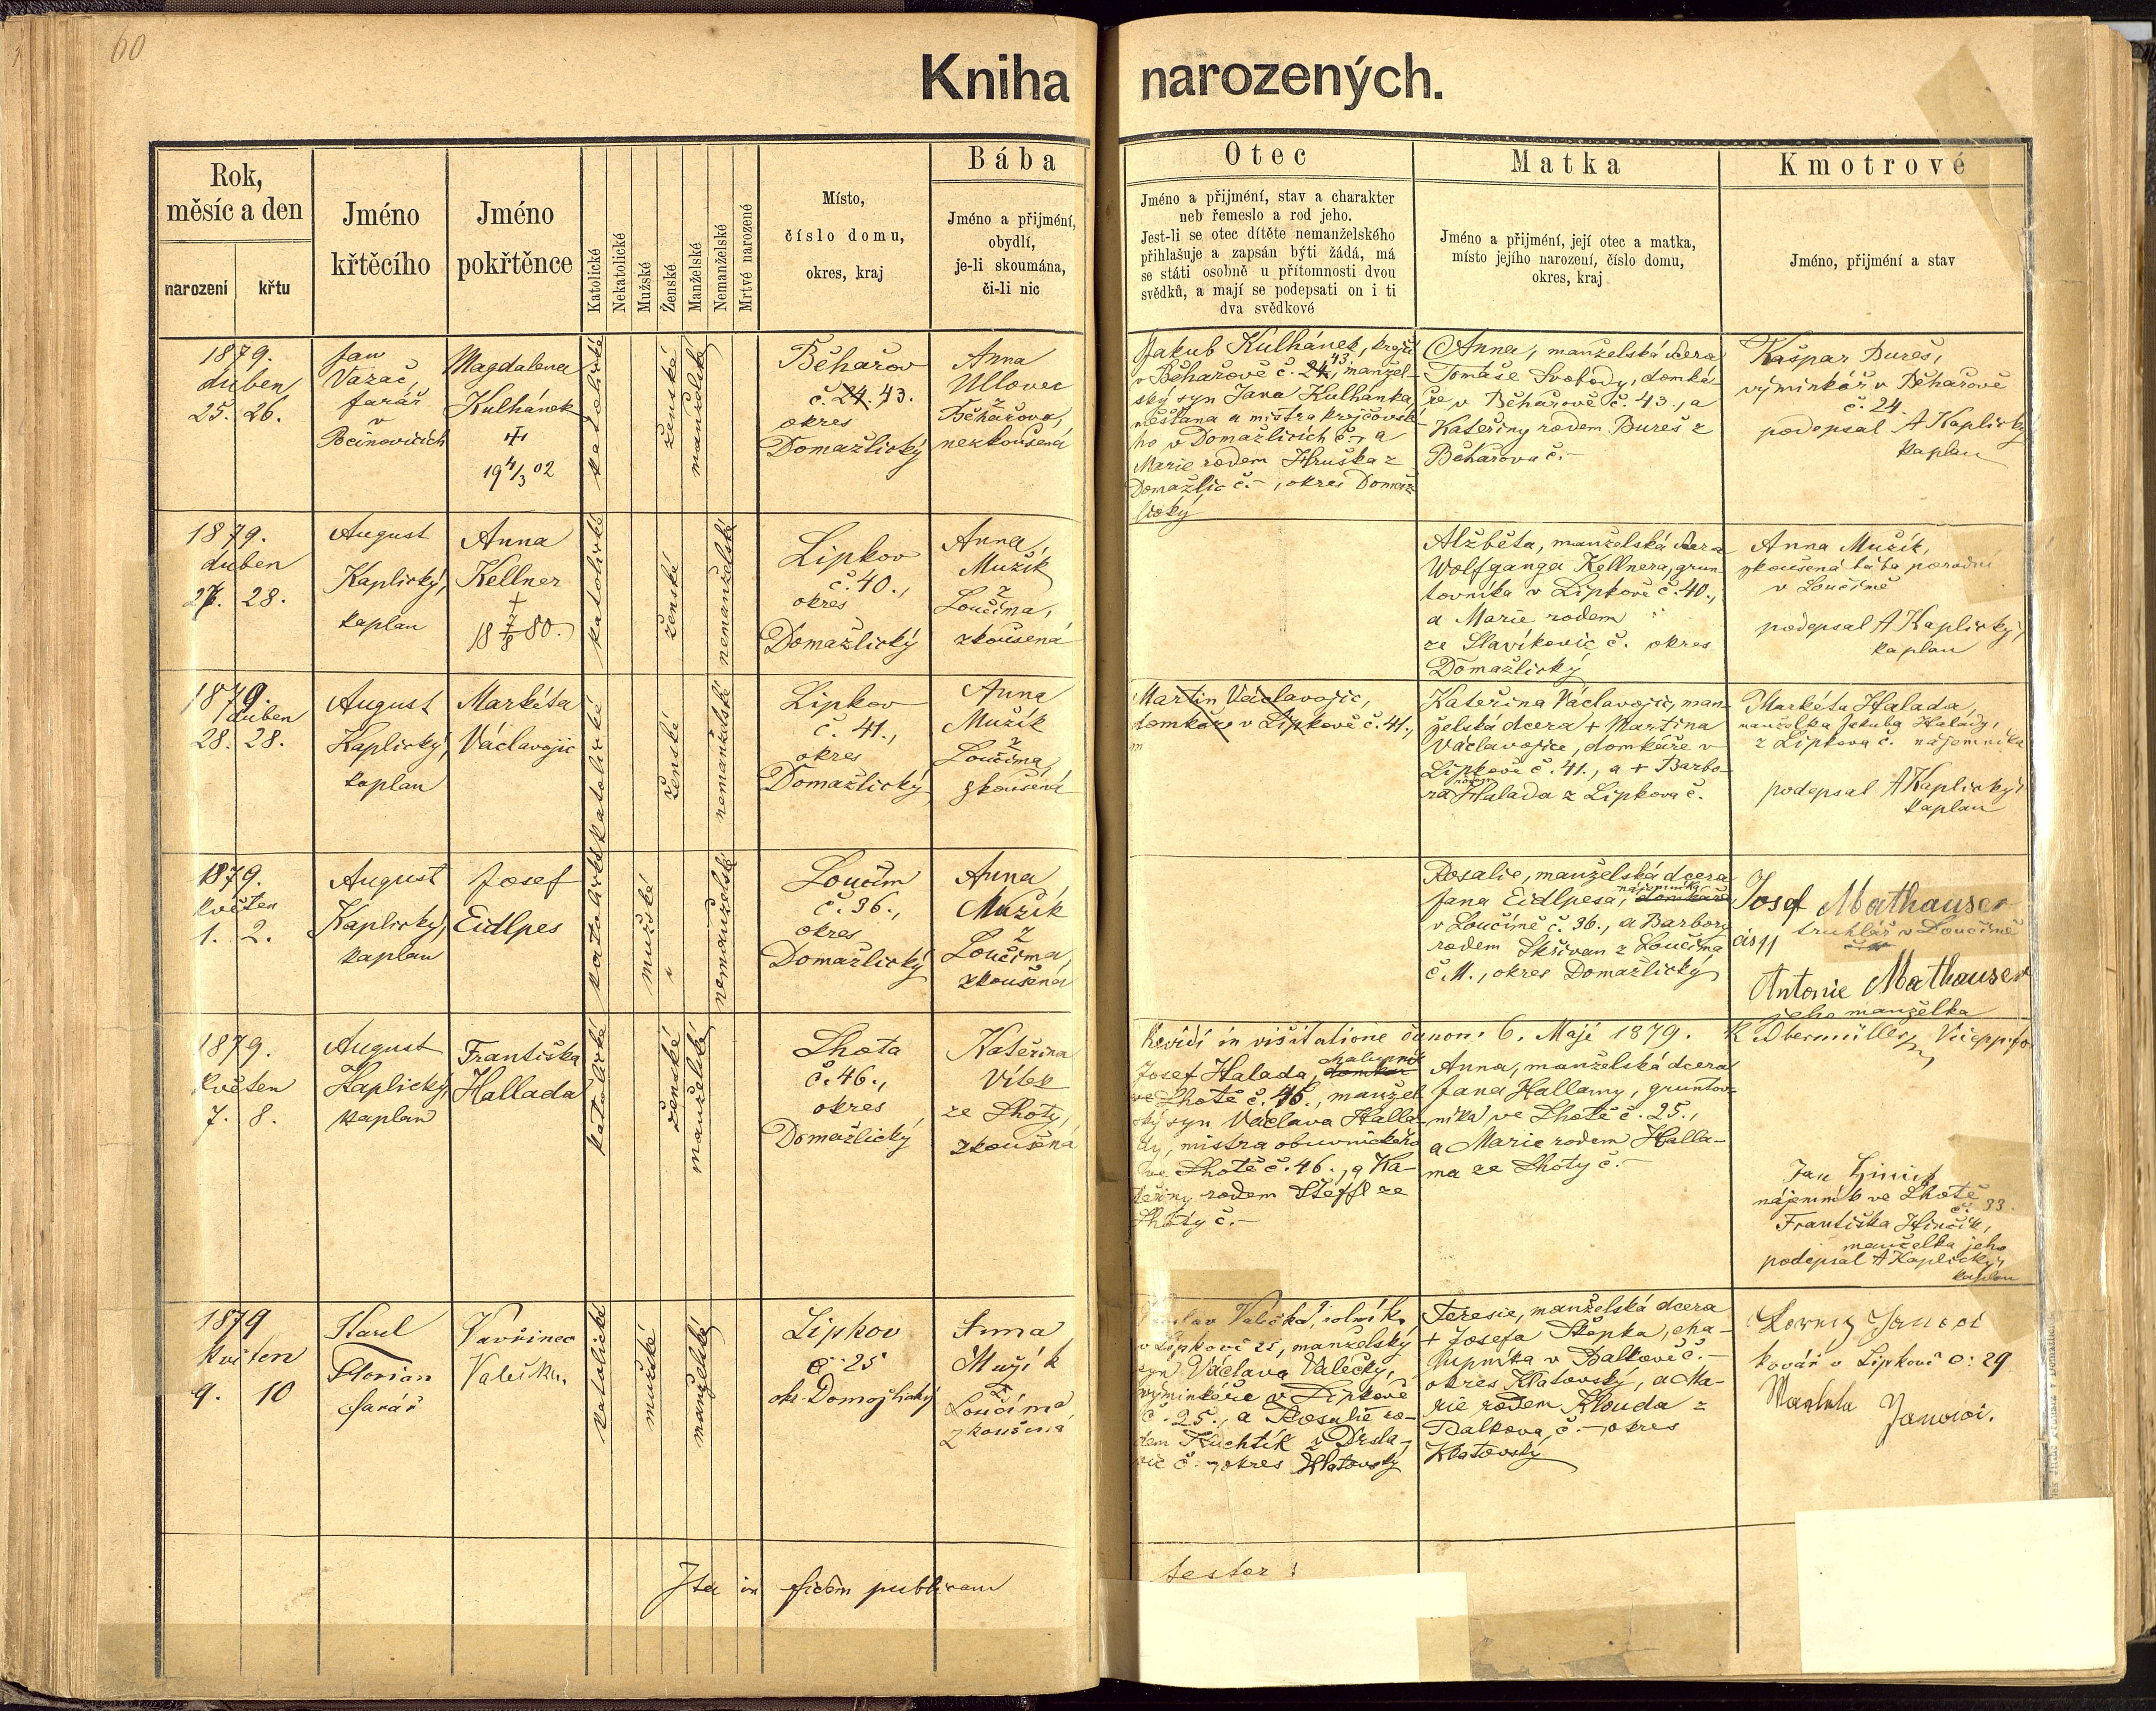 60
Kniha narozených.
Rok,
měsíc a den
narození křtu
Jméno
křtěcího
Jméno
pokřtěnce
Katolické
Nekatolické
Mužské
Ženské
Manželské
Nemanželské
Mrtvé narozené
Místo,
číslo domu,
okres, kraj
Bába
Jméno a přijmení,
obydlí,
je-li skoumána,
či-li nic
Otec
Jméno a přijmení, stav a charakter
neb řemeslo a rod jeho.
Jest-li se otec dítěte nemanželského
přihlašuje a zapsán býti žádá, má
se státi osobně u přítomnosti dvou
svědků, a mají se podepsati on i ti
dva svědkové
Matka
Jméno a přijmení, její otec a matka,
místo jejího narození, číslo domu,
okres, kraj
Kmotrové
Jméno, přijmení a stav
1879.
duben
25. 26.
Jan
Vazač,
farář
v
Pocinovicích
Magdalena
Kulhánek
19 4/3 02
katolické
ženské
manželské
Běhařov
č. 24. 43.
okres
Domažlický
Anna
Ullovec
z
Běhařova,
nezkoušená
Jakub Kulhánek, krejčí
v Běhařově č. 24, 43. manžel-
ský syn Jana Kulhánka,
měšťana a mistra krejčovské-
ho v Domažlicích č.– a
Marie rodem Hruška z
Domažlic č.–, okres Domaž-
lický
Anna, manželská dcera
Tomáše Svobody, domká-
ře v Běhařově č. 43., a
Kateřiny rodem Bureš z
Běhařova č.–
Kašpar Bureš,
výminkář v Běhařově
č. 24.
podepsal A Kaplický
kaplan
1879.
duben
27. 28.
August
Kaplický,
kaplan
Anna
Kellner
†
18 7/8 80.
katolické
ženské
nemanželské
Lipkov
č. 40.,
okres
Domažlický
Anna
Mužík
z
Loučima,
zkoušená
Alžběta, manželská dcera
Wolfganga Kellnera, grun-
tovníka v Lipkově č. 40.,
a Marie rodem
ze Slavíkovic č. okres
Domažlický
Anna Mužík,
zkoušená bába porodní
v Loučimě
podepsal A Kaplický,
kaplan
1879.
duben
28. 28.
August
Kaplický,
kaplan
Markéta
Václavojic
katolické
ženské
nemanželské
Lipkov
č. 41.,
okres
Domažlický
Anna
Mužík
z
Loučima,
zkoušená
Martin Václavojic,
domkáře v Lipkově č. 41.,
m
Kateřina Václavojic, man-
želská dcera + Martina
Václavojice, domkáře v
Lipkově č. 41., a + Barbo-
ra rodem Halada z Lipkova č.
Markéta Halada,
manželka Jakuba Halady,
z Lipkova č. nájemníka
podepsal A Kaplický,
kaplan
1879.
květen
1. 2.
August
Kaplický,
kaplan
Josef
Eidlpes
katolické
mužské
nemanželské
Loučim
č. 36.,
okres
Domažlický
Anna
Mužík
z
Loučima,
zkoušená
Rosalie, manželská dcera
Jana Eidlpesa, nájemníka domkáře
v Loučimě č. 36., a Barbory
rodem Skřivan z Loučima
č. 11., okres Domažlický
Josef Mathauser
truhlář v Loučimě
čís 11
Antonie Mathauser
jeho manželka
Revidi in visitatione canon: 6. Maji 1879.
1879.
květen
7. 8.
August
Kaplický,
kaplan
Františka
Hallada
katolické
ženské
manželské
Lhota
č. 46.,
okres
Domažlický
Kateřina
Vítek
ze Lhoty,
zkoušená
Josef Halada, chalupník domkář
ve Lhotě č. 46., manžel-
ský syn Václava Halla-
dy, mistra obuvnického
ve Lhotě č. 46., a Ka-
teřiny rodem Steffl ze
Lhoty č.–
Anna, manželská dcera
Jana Hallamy, gruntov-
níka ve Lhotě č. 25.,
a Marie rodem Halla-
ma ze Lhoty č.–
Jan
nájemník ve Lhotě
č. 33.
Františka Hinčík,
manželka jeho
podepsal A Kaplický,
kaplan
1879
květen
9. 10
Karel
Florián
farář
Vavřinec
Valečka
katolické
mužské
manželské
Lipkov
č. 25
okr. Domažlický
Anna
Mužík
z
Loučima
zkoušená
Valečka, rolník
v Lipkově 25, manželský
syn Václava Valečky,
výminkáře v Lipkově
č. 25., a Rosalie ro-
dem Kuchtík z Drsla-
vic č. – okres Klatovský
Teresie, manželská dcera
+ Josefa Štěpka, cha-
lupníka v Balkově č.–
okres Klatovský, a Ma-
rie rodem Klouda z
Balkova, č.– okres
Klatovský
Janovi
kovář v Lipkově č: 29
Janovi.
Ita in fidem publicam
testor!